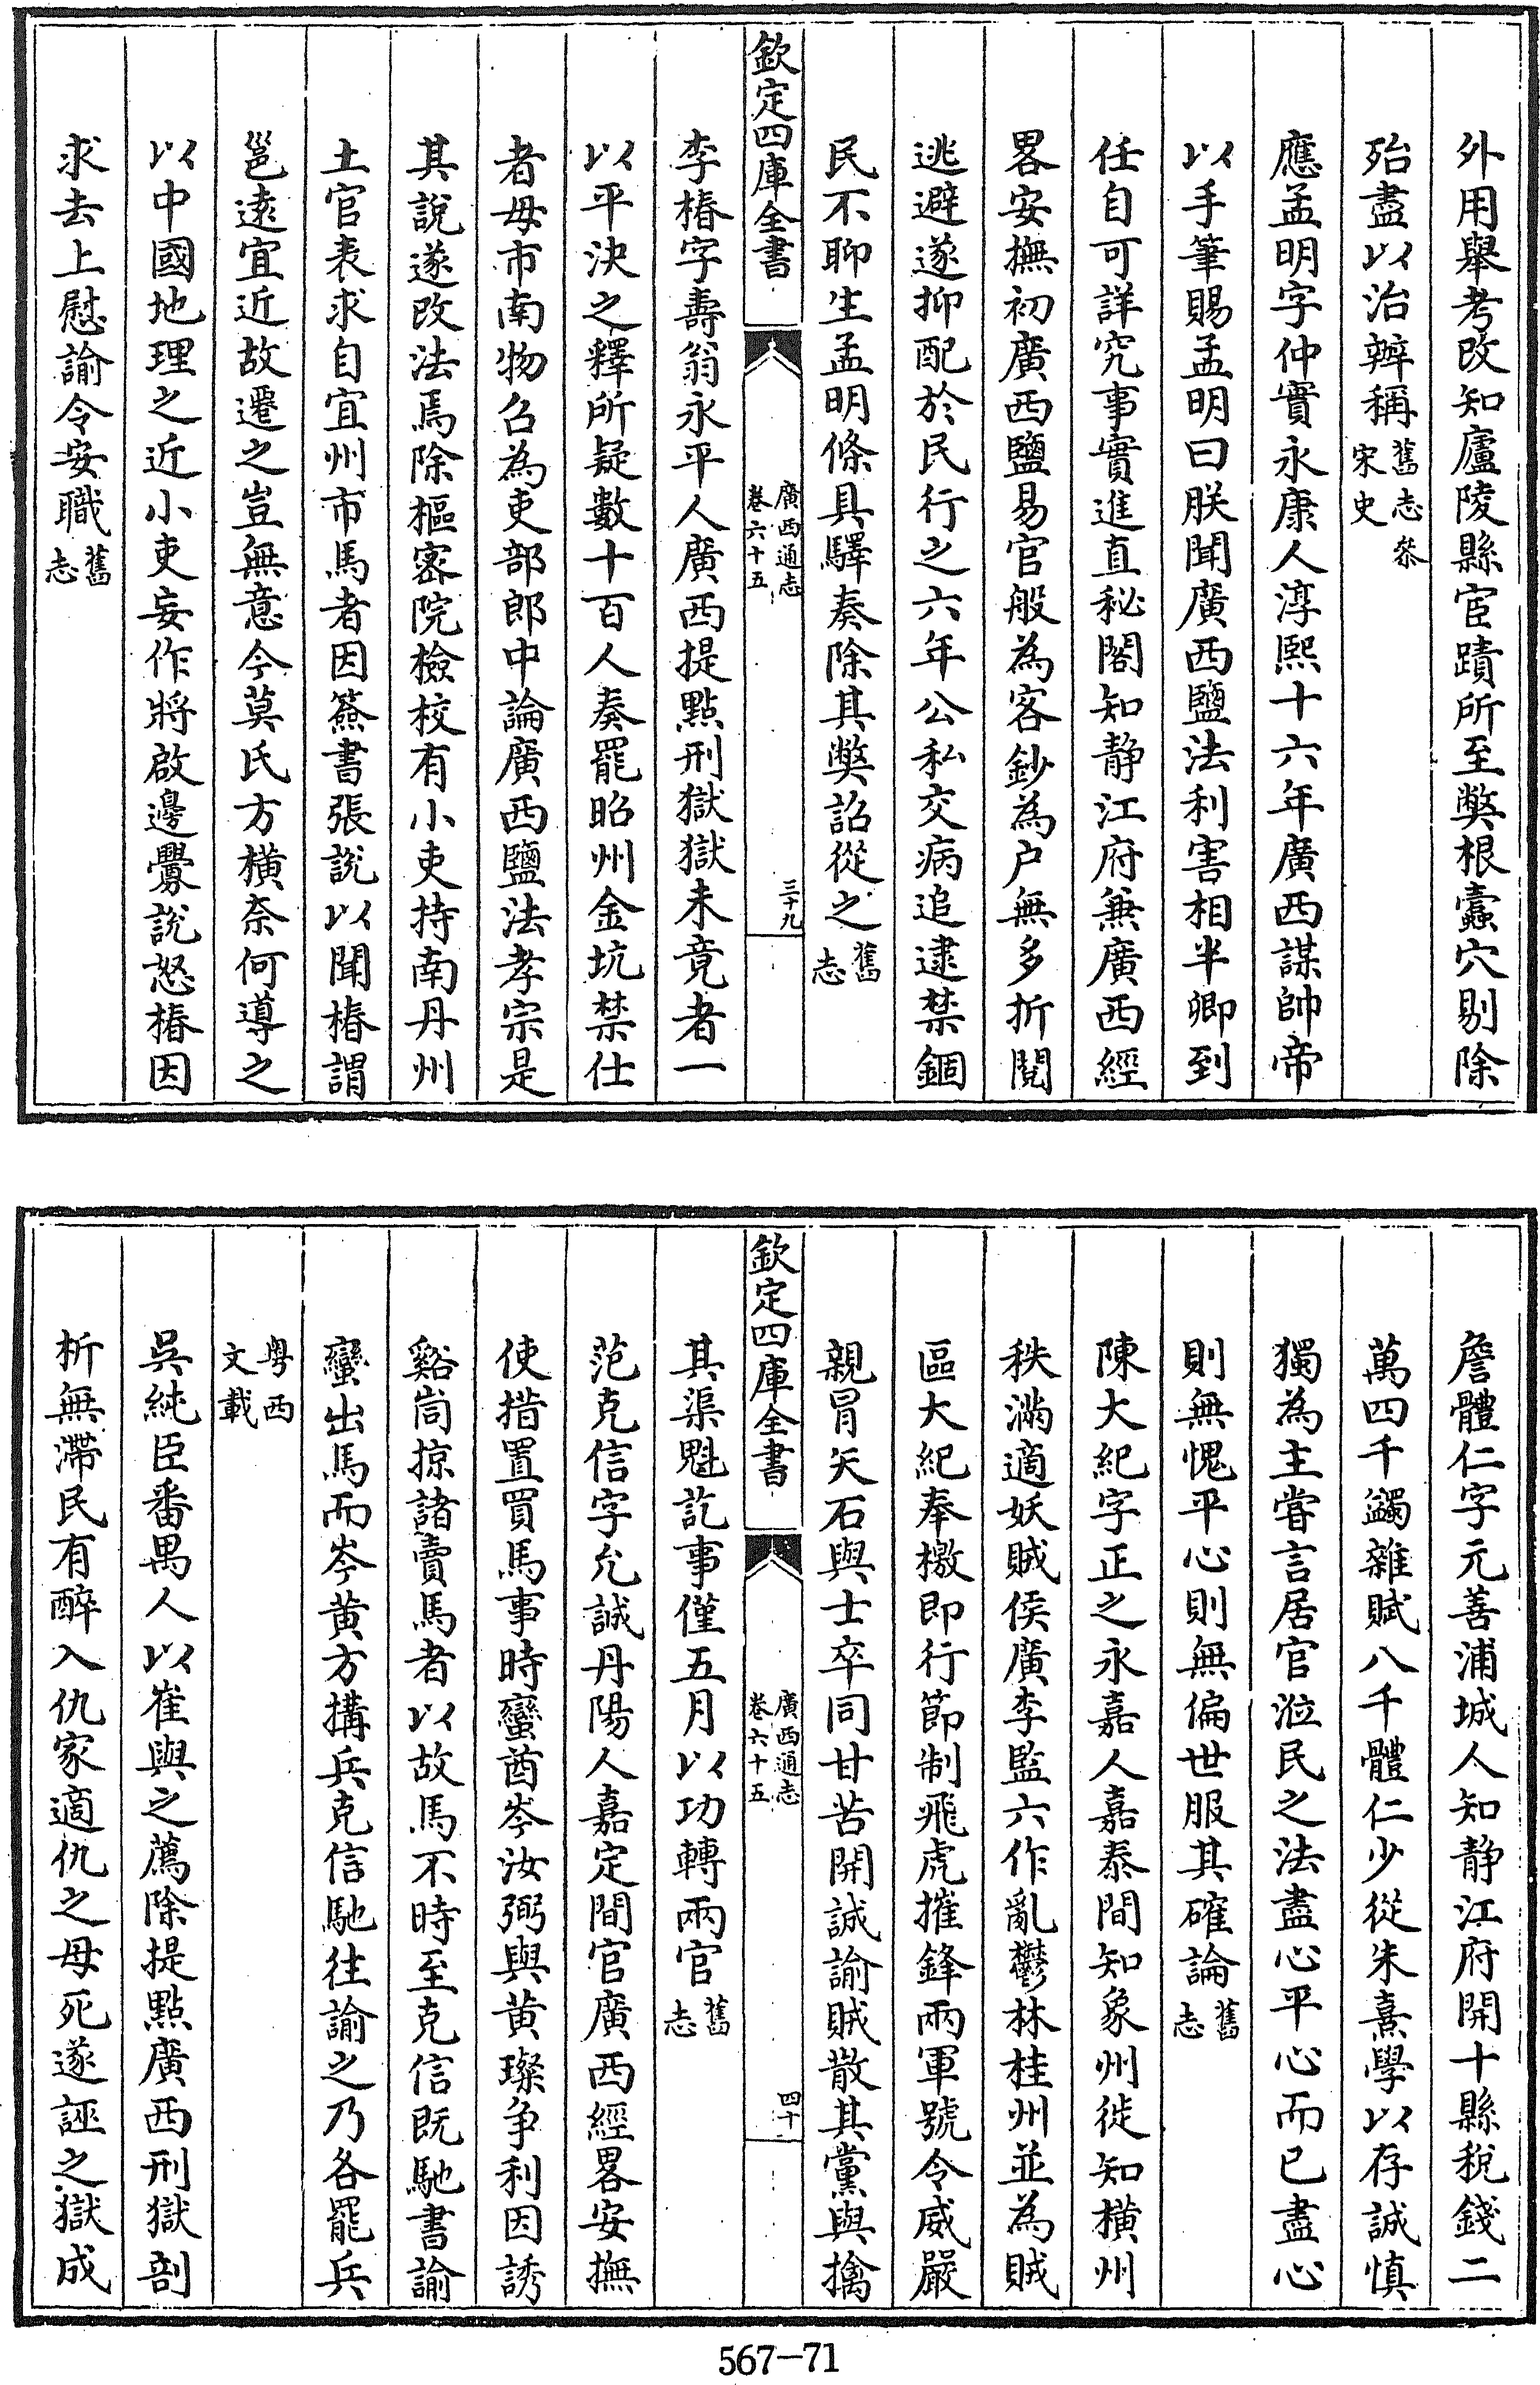 外用舉考改知廬陵縣宦蹟所至弊根蠹穴剔除
殆盡以治辦稱舊志叅宋史
應孟明字仲實永康人淳熙十六年廣西謀帥帝
以手筆賜孟明曰朕聞廣西鹽法利害相半卿到
任自可詳究事實進直秘閣知静江府兼廣西經
畧安撫初廣西鹽易官般為客鈔為户無多折閱
逃避遂抑配於民行之六年公私交病追逮禁錮
民不聊生孟明條具驛奏除其弊詔從之舊志
欽定四庫全書
廣西通志
卷六十五
三十九
李椿字壽翁永平人廣西提點刑獄獄未竟者一
以平決之釋所疑數十百人奏罷昭州金坑禁仕
者毋市南物召為吏部郎中論廣西鹽法孝宗是
其說遂改法焉除樞密院檢校有小吏持南丹州
土官表求自宜州市馬者因簽書張說以聞椿謂
邕遠宜近故遷之豈無意今莫氏方橫奈何導之
以中國地理之近小吏妄作將啟邊釁説怒椿因
求去上慰諭令安職舊志
詹體仁字元善浦城人知静江府開十縣税錢二
萬四千蠲雜賦八千體仁少從朱熹學以存誠慎
獨為主嘗言居官涖民之法盡心平心而已盡心
則無愧平心則無偏世服其確論舊志
陳大紀字正之永嘉人嘉泰間知象州徙知橫州
秩滿適妖賊侯廣李監六作亂鬱林桂州並為賊
區大紀奉檄即行節制飛虎摧鋒兩軍號令威嚴
親冒矢石與士卒同甘苦開誠諭賊散其黨與擒
欽定四庫全書
廣西通志
卷六十五
四十
其渠魁訖事僅五月以功轉兩官舊志
范克信字允誠丹陽人嘉定間官廣西經畧安撫
使措置買馬事時蠻酋岑汝弼與黄璨争利因誘
谿峝掠諸賣馬者以故馬不時至克信既馳書諭
蠻出馬而岑黄方搆兵克信馳往諭之乃各罷兵
粤西文載
吳純臣番禺人以崔與之薦除提點廣西刑獄剖
析無滯民有醉入仇家適仇之母死遂誣之獄成
567—71